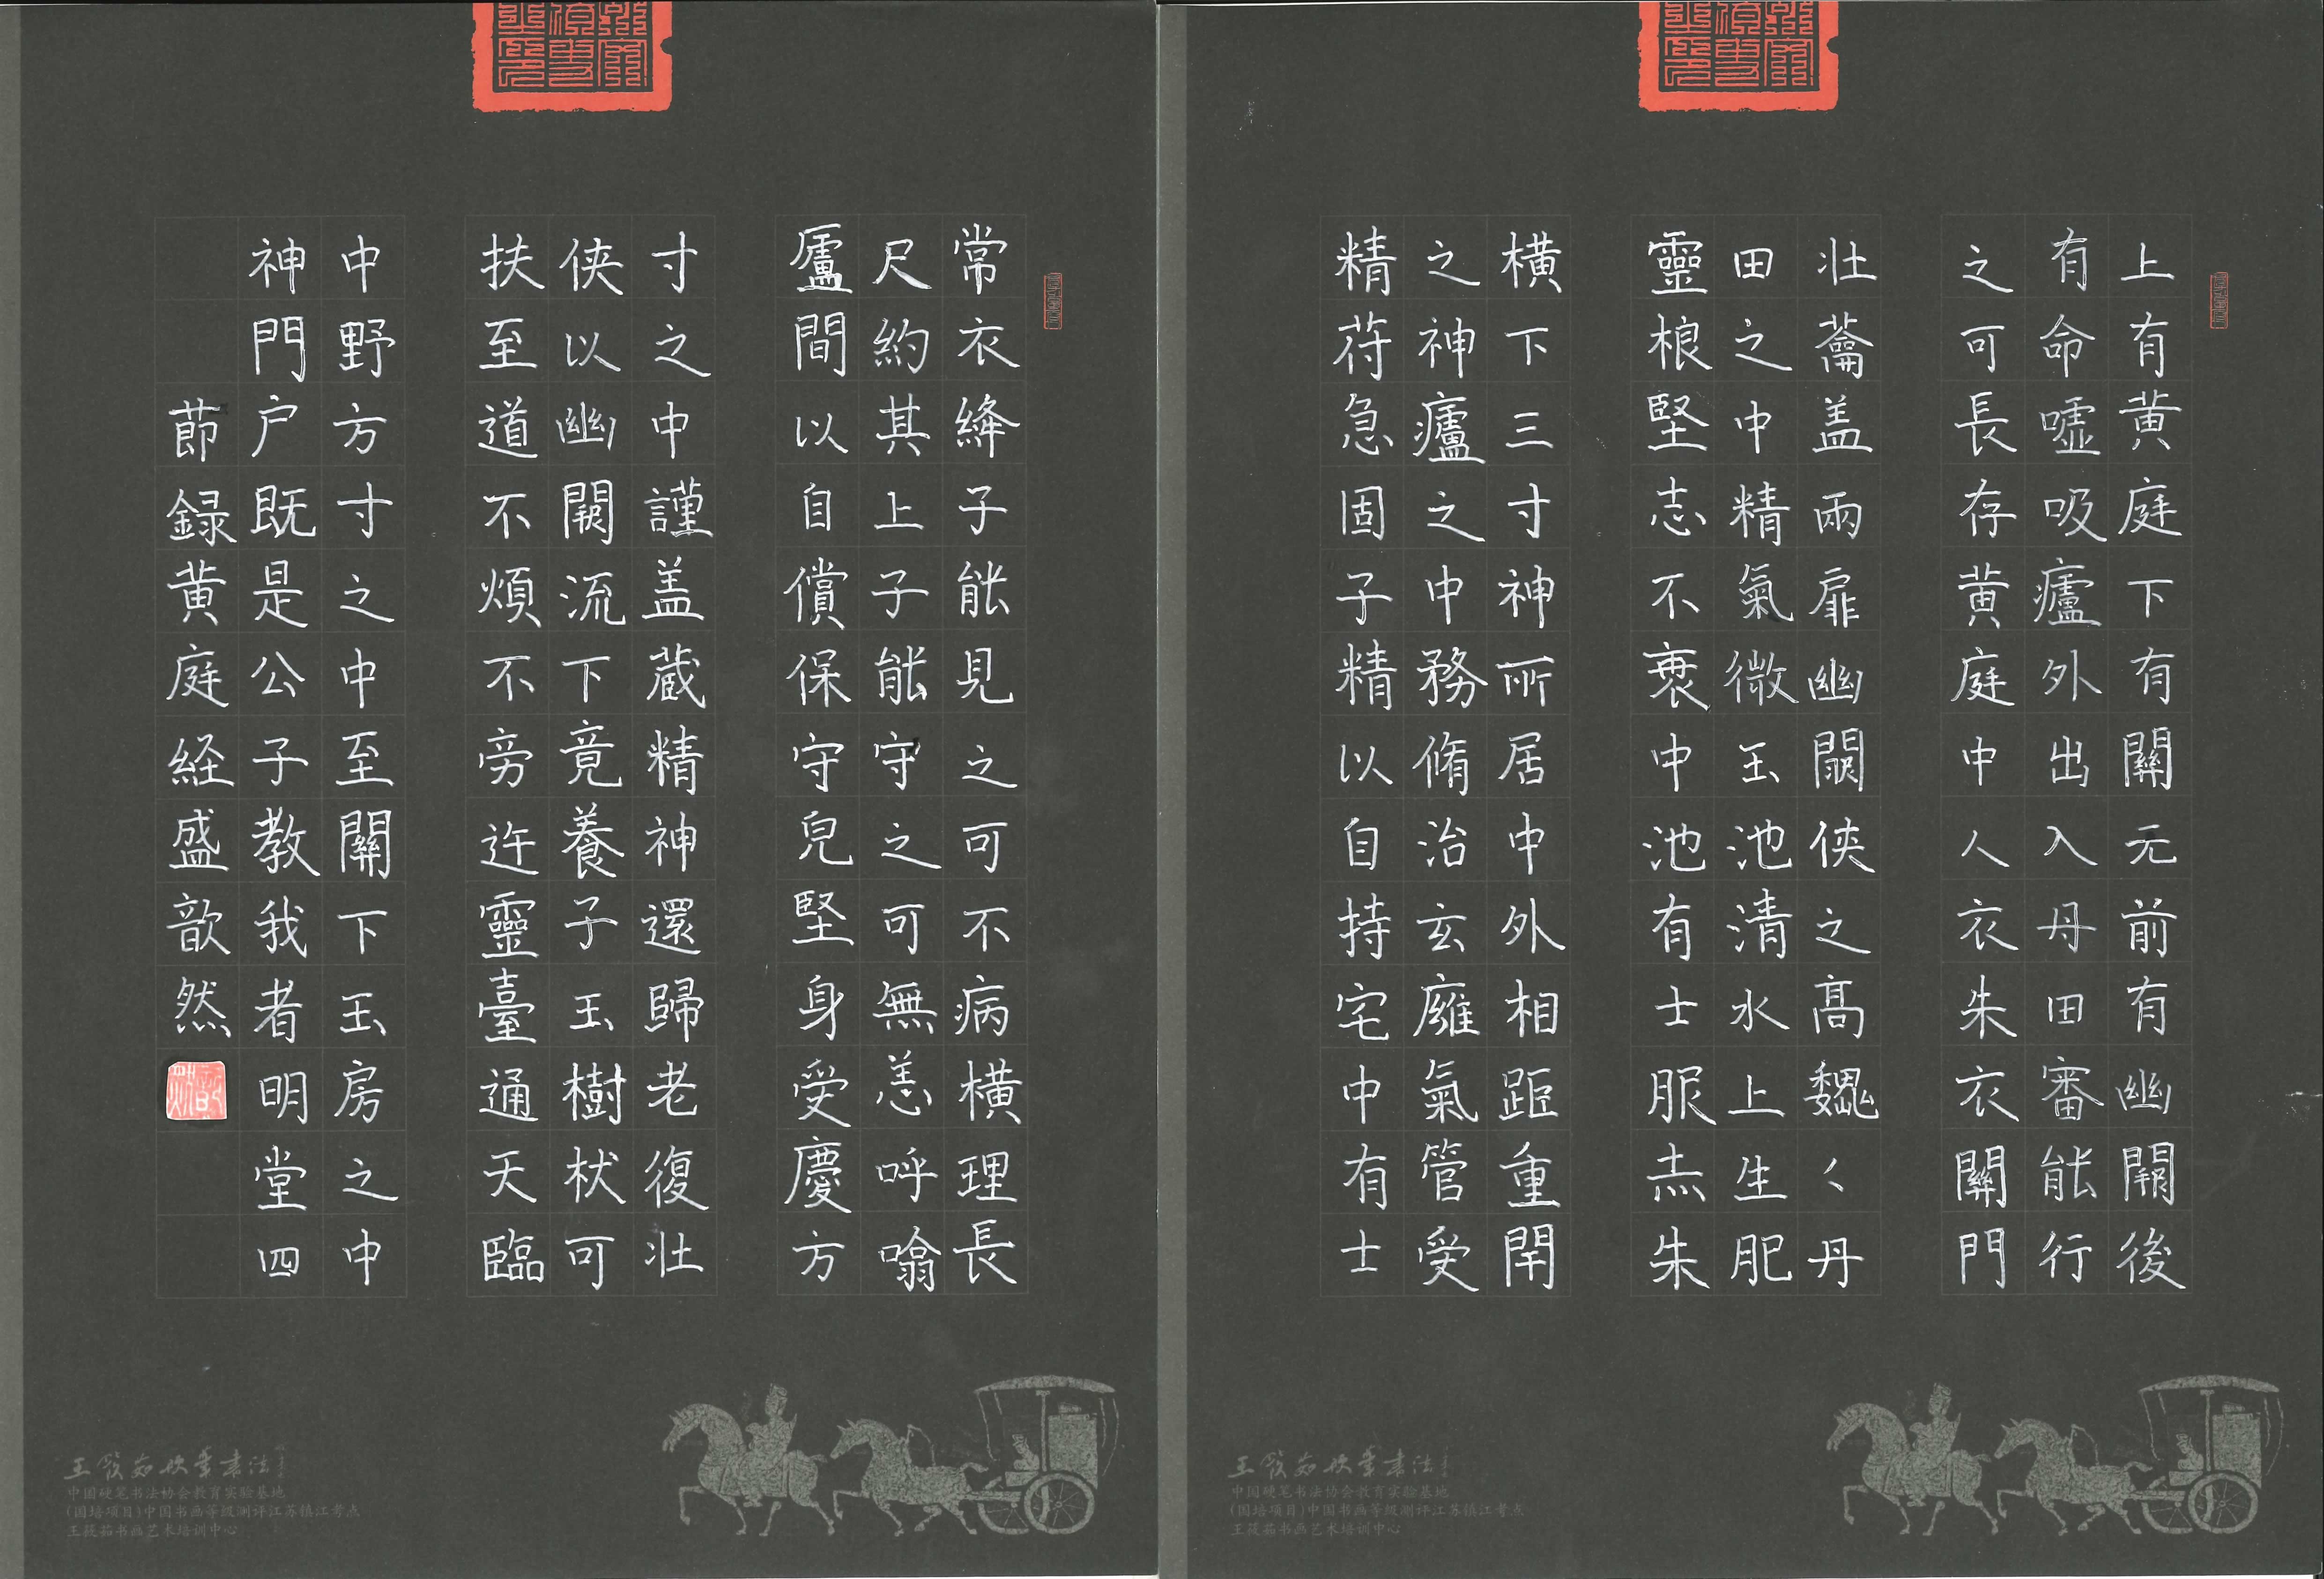 上有黄庭下有關元前有幽闕後
有命嘘吸廬外出入丹田審能行
之可長存黄庭中人衣朱衣關門
壯蘥盖兩扉幽闕俠之高魏〱丹
田之中精氣微玉池清水上生肥
靈根堅志不衰中池有士服赤朱
横下三寸神所居中外相距重閇
之神廬之中務脩治玄廱氣管受
精苻急固子精以自持宅中有士
常衣絳子能見之可不病横理長
尺約其上子能守之可無恙呼噏
廬間以自償保守皃堅身受慶方
寸之中謹盖蔵精神還歸老復壯
俠以幽闕流下竟養子玉樹杖可
扶至道不煩不旁迕靈臺通天臨
中野方寸之中至關下玉房之中
神門户既是公子教我者明堂四
莭録黄庭経盛歆然
中国硬笔书法协会教育实验基地
(国培项目)中国书画等级测评江苏镇江考点
王筱茹书画艺术培训中心
中国硬笔书法协会教育实验基地
(国培项目)中国书画等级测评江苏镇江考点
王筱茹书画艺术培训中心